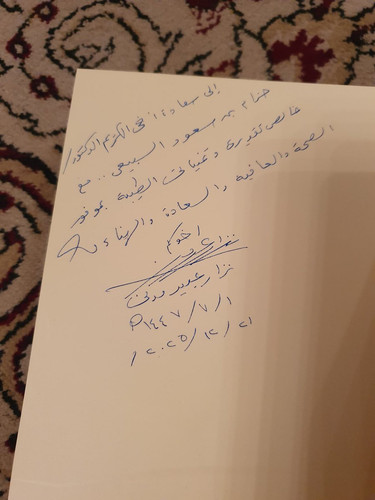 إلى سعادة أخي الكريم الدكتور/
حزام بن سعود السبيعي .. مع
خالص تقديري وتمنياتي الطيبة بموفور
الصحة والعافية والسعادة والهناء
أخوكم
نزار عبيد مدني
١٤٤٧/٧/١هـ
٢٠٢٥/١٢/٢١م